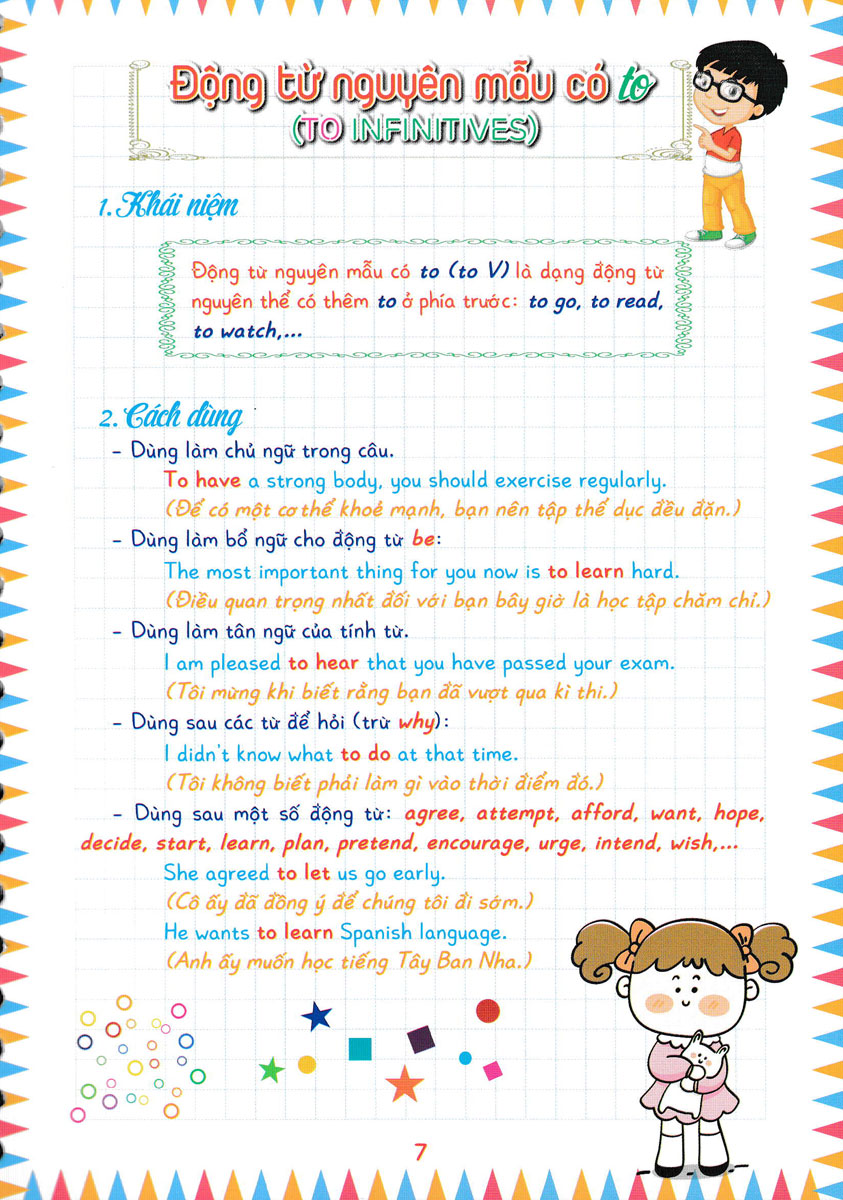 Động từ nguyên mẫu có to
(TO INFINITIVES)
1. Khái niệm
Động từ nguyên mẫu có to (to V) là dạng động từ
nguyên thể có thêm to ở phía trước: to go, to read,
to watch,...
2. Cách dùng
– Dùng làm chủ ngữ trong câu.
To have a strong body, you should exercise regularly.
(Để có một cơ thể khoẻ mạnh, bạn nên tập thể dục đều đặn.)
– Dùng làm bổ ngữ cho động từ be:
The most important thing for you now is to learn hard.
(Điều quan trọng nhất đối với bạn bây giờ là học tập chăm chỉ.)
– Dùng làm tân ngữ của tính từ.
I am pleased to hear that you have passed your exam.
(Tôi mừng khi biết rằng bạn đã vượt qua kì thi.)
– Dùng sau các từ để hỏi (trừ why):
I didn't know what to do at that time.
(Tôi không biết phải làm gì vào thời điểm đó.)
– Dùng sau một số động từ: agree, attempt, afford, want, hope,
decide, start, learn, plan, pretend, encourage, urge, intend, wish,...
She agreed to let us go early.
(Cô ấy đã đồng ý để chúng tôi đi sớm.)
He wants to learn Spanish language.
(Anh ấy muốn học tiếng Tây Ban Nha.)
7